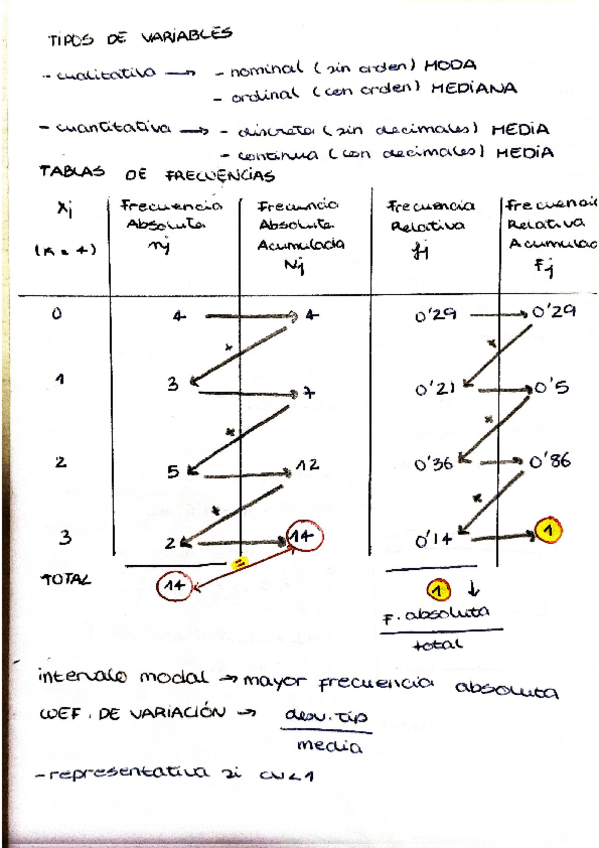 TIPOS DE VARIABLES
- cualitativa → - nominal (sin orden) MODA
- ordinal (con orden) MEDIANA
- cuantitativa → - discreta (sin decimales) MEDIA
- continua (con decimales) MEDIA
TABLAS DE FRECUENCIAS
xj Frecuencia Frecuencia Frecuencia Frecuencia
Absoluta Absoluta Relativa Relativa
nj Acumulada fj Acumulac
(K = 4) Nj Fj
0 4 → 4 0'29 → 0'29
+ +
1 3 → 7 0'21 → 0'5
+ +
2 5 → 12 0'36 → 0'86
+ +
3 2 → 14 0'14 → 1
=
TOTAL 14 1 ↓
F. absoluta
total
intervalo modal → mayor frecuencia absoluta
COEF. DE VARIACIÓN → desv. tip
media
- representativa si CV<1